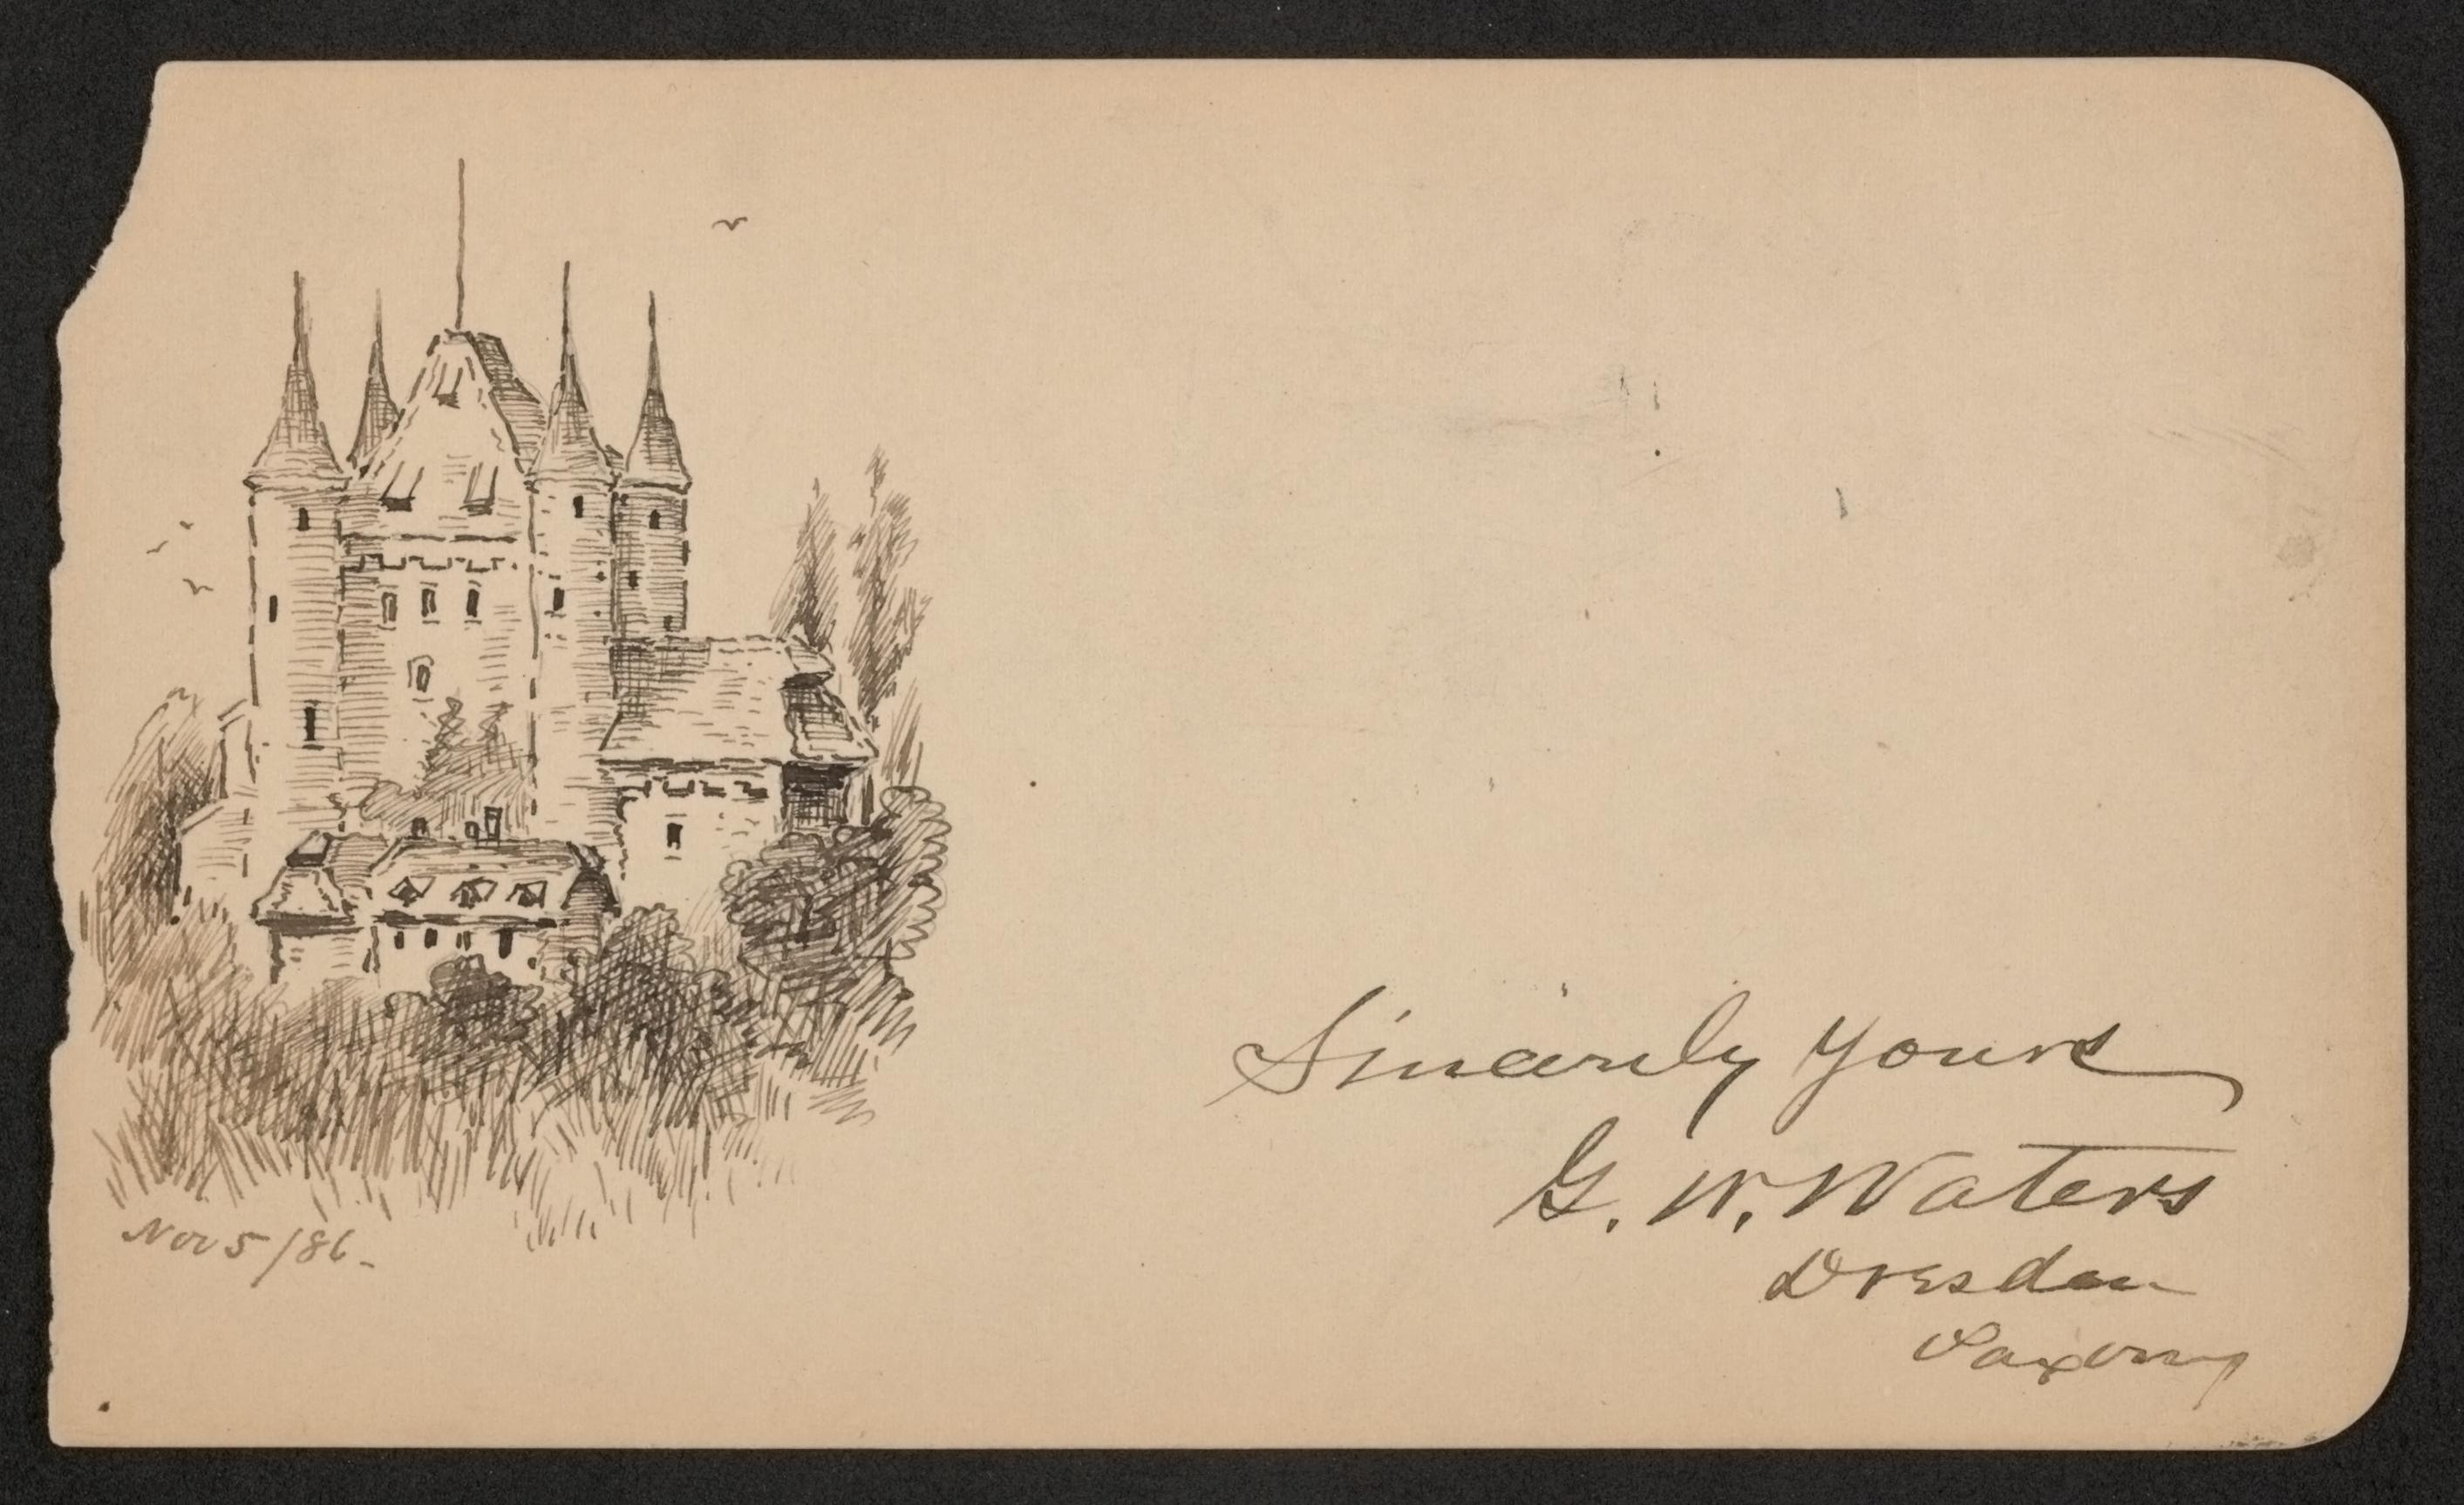 Nov 5/86-
Sincerely Yours
G. W. Waters
Dresden
Saxony